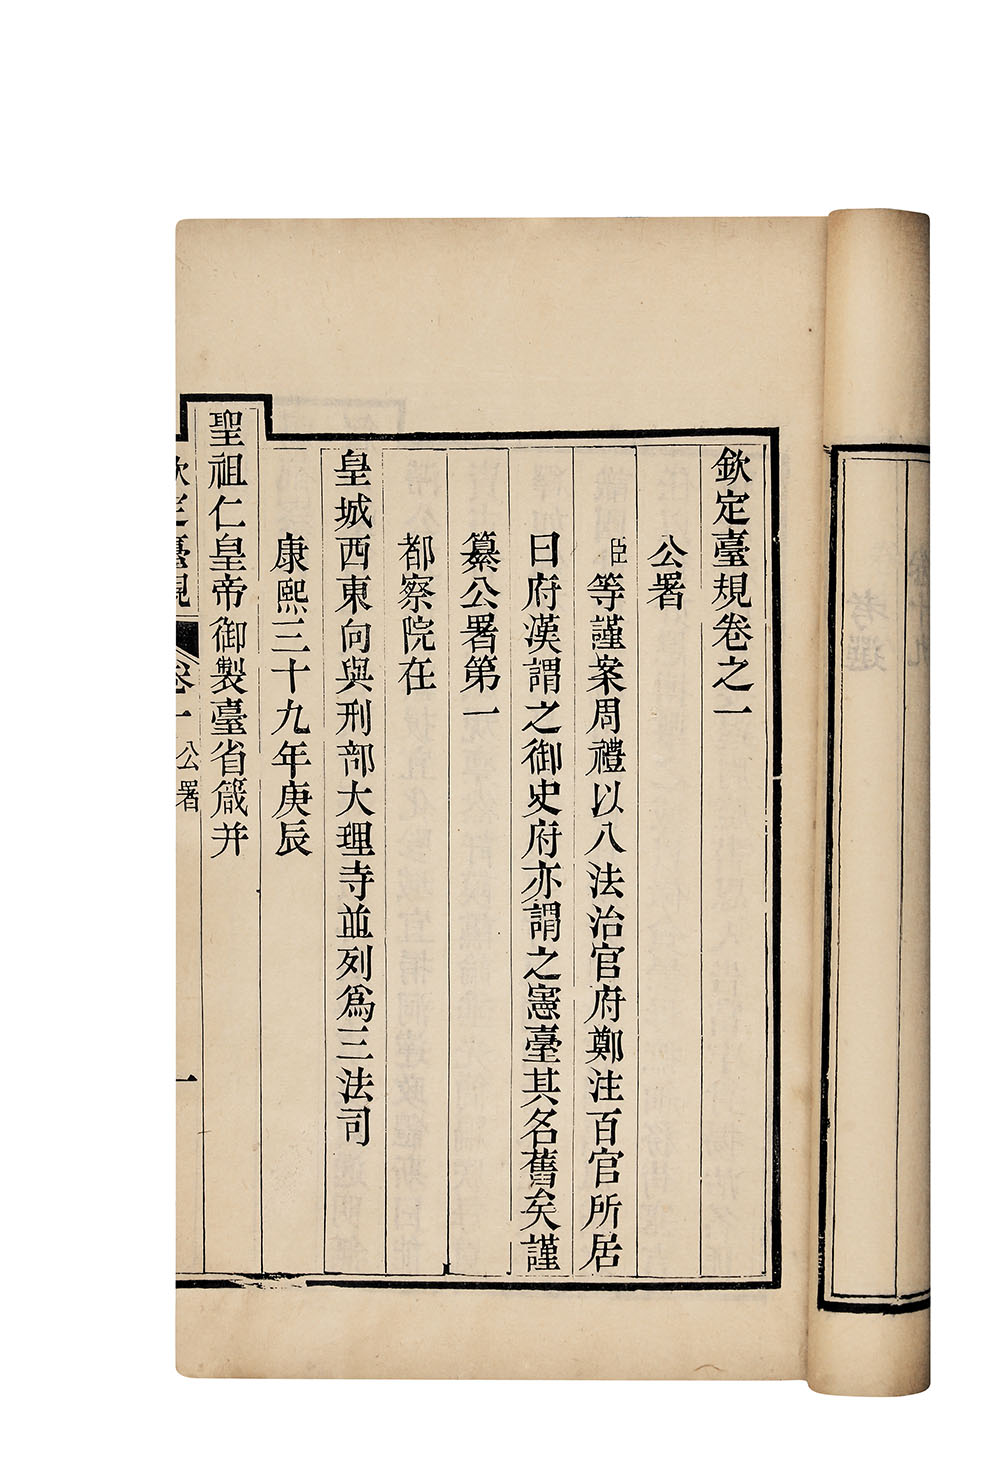 欽定臺規卷之一
公署
臣等謹案周禮以八法治官府鄭注百官所居
曰府漢謂之御史府亦謂之憲臺其名舊矣謹
纂公署第一
都察院在
皇城西東向與刑部大理寺並列爲三法司
康熙三十九年庚辰
聖祖仁皇帝御製臺省箴并
欽定臺規 卷一 公署 一